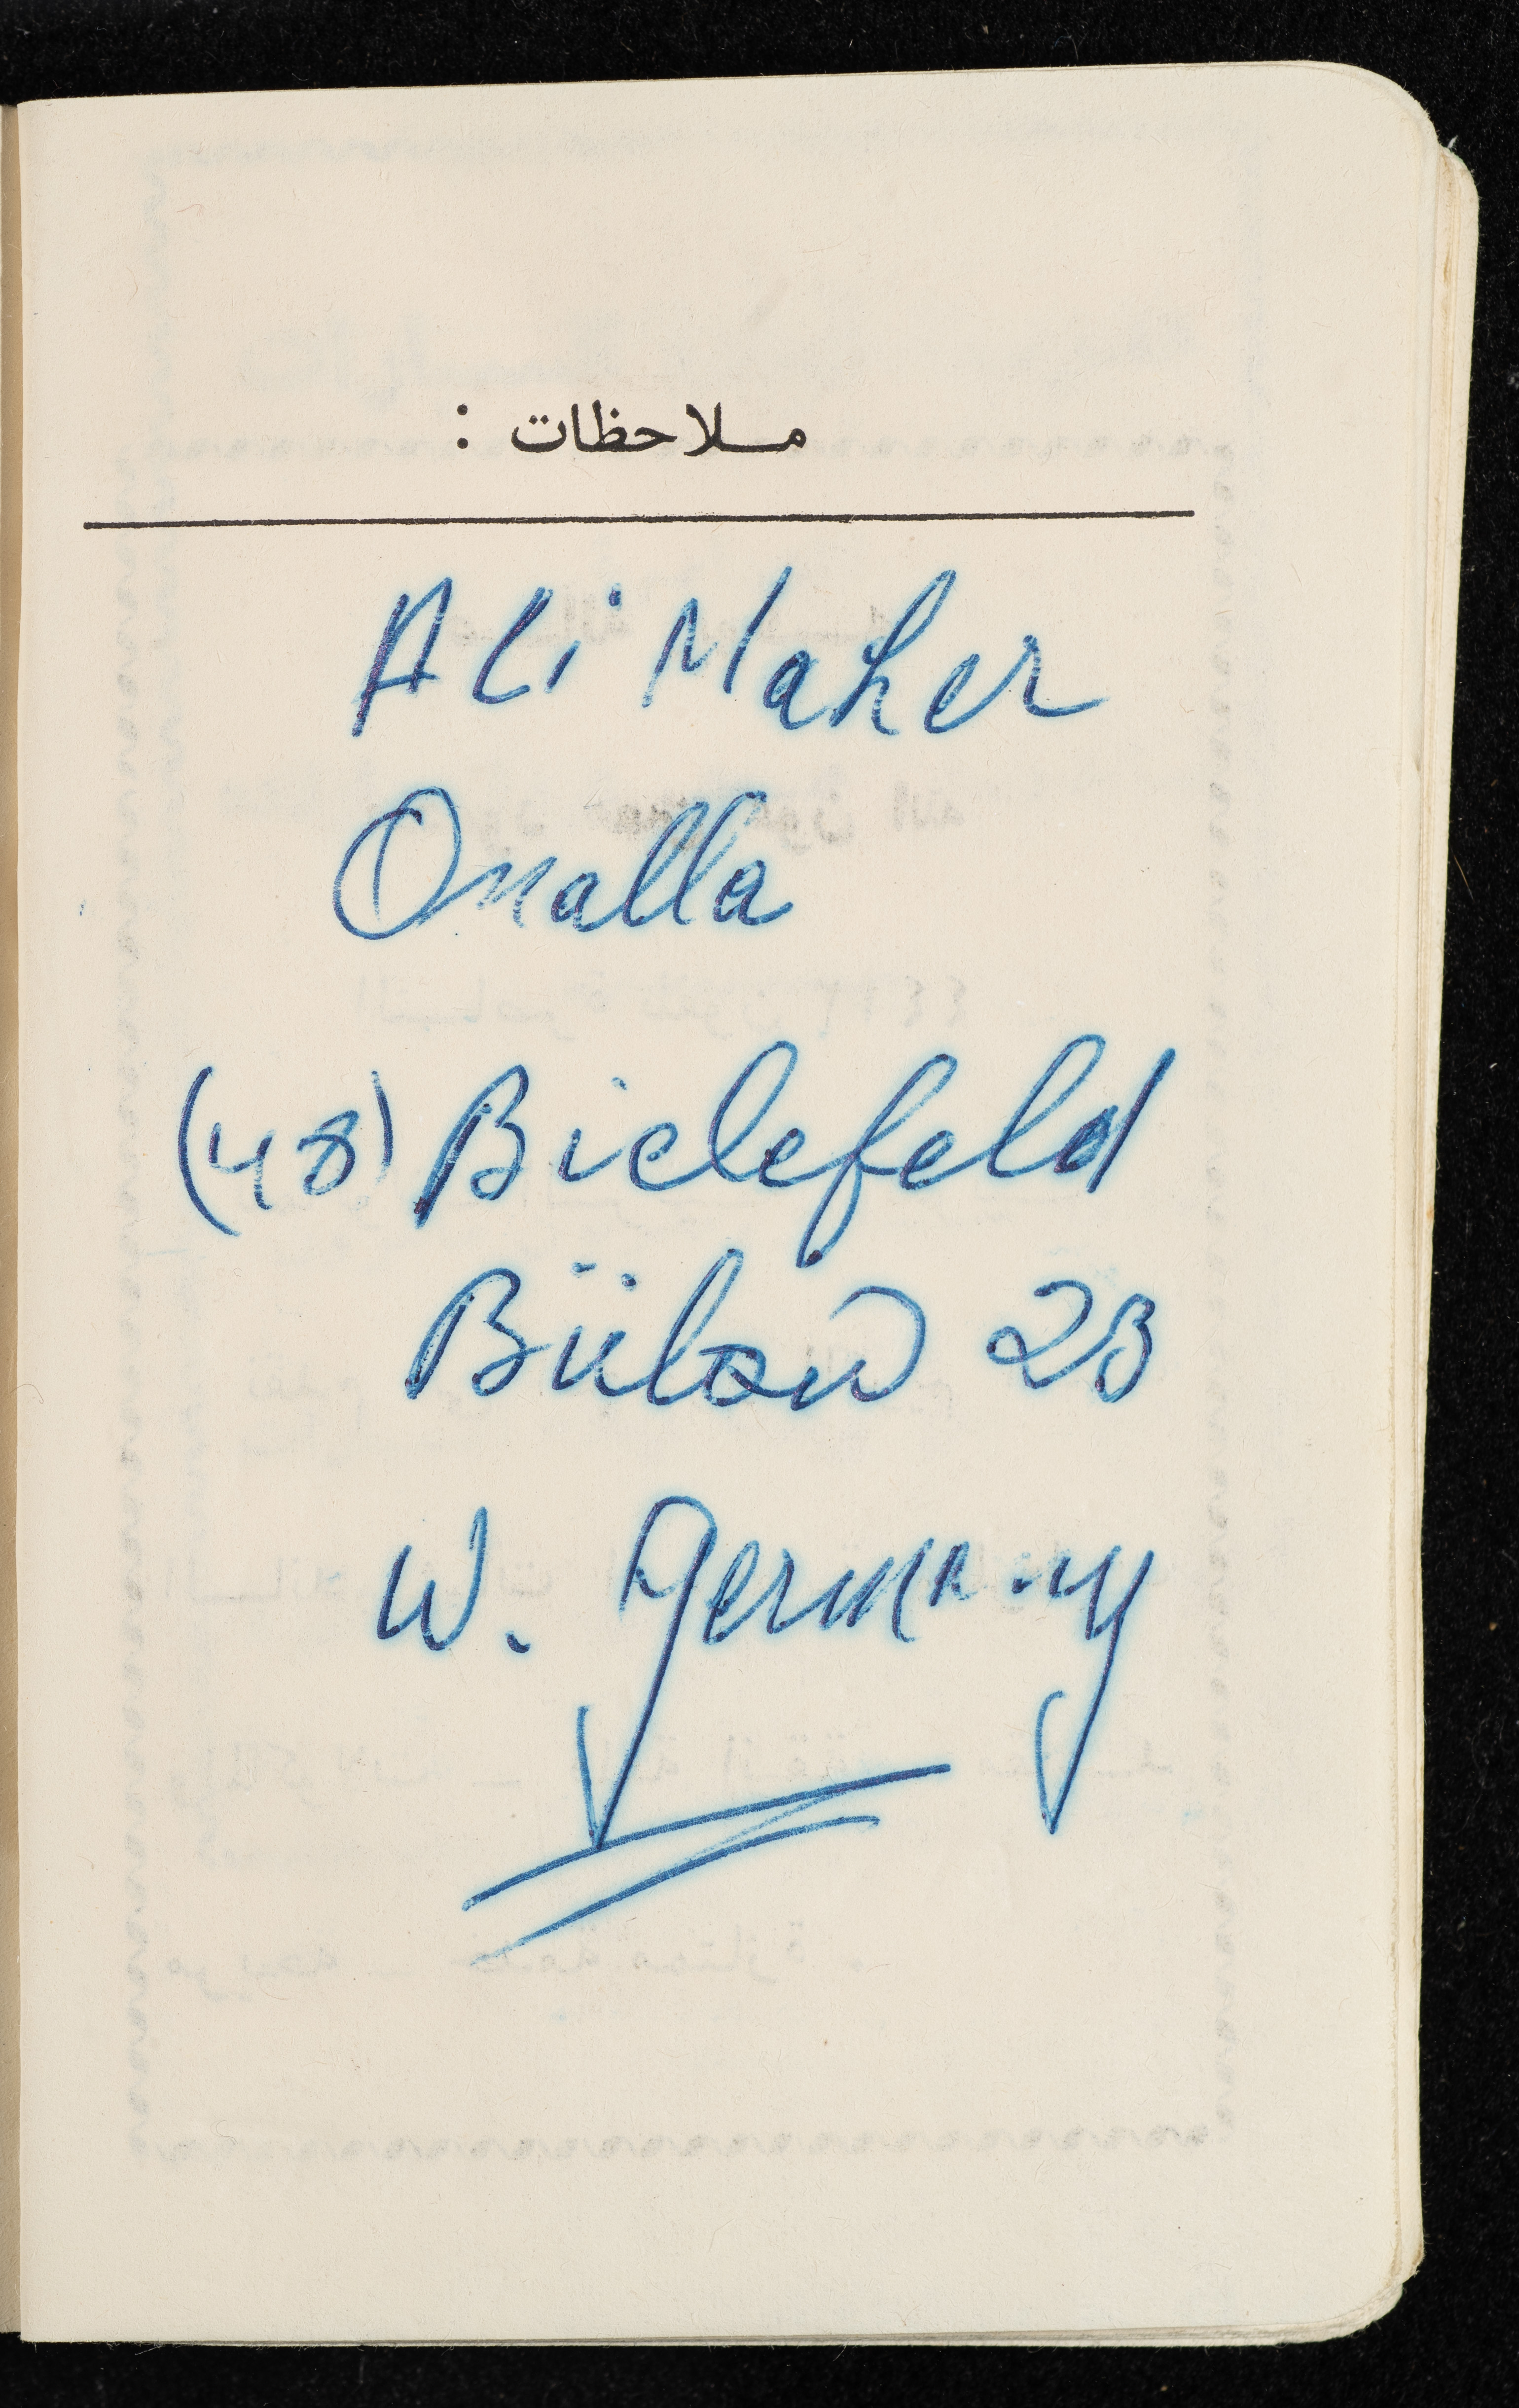 ملاحظات :
Ali Maher
Onalla
(48) Bielefeld
Bülow 23
W. Germany